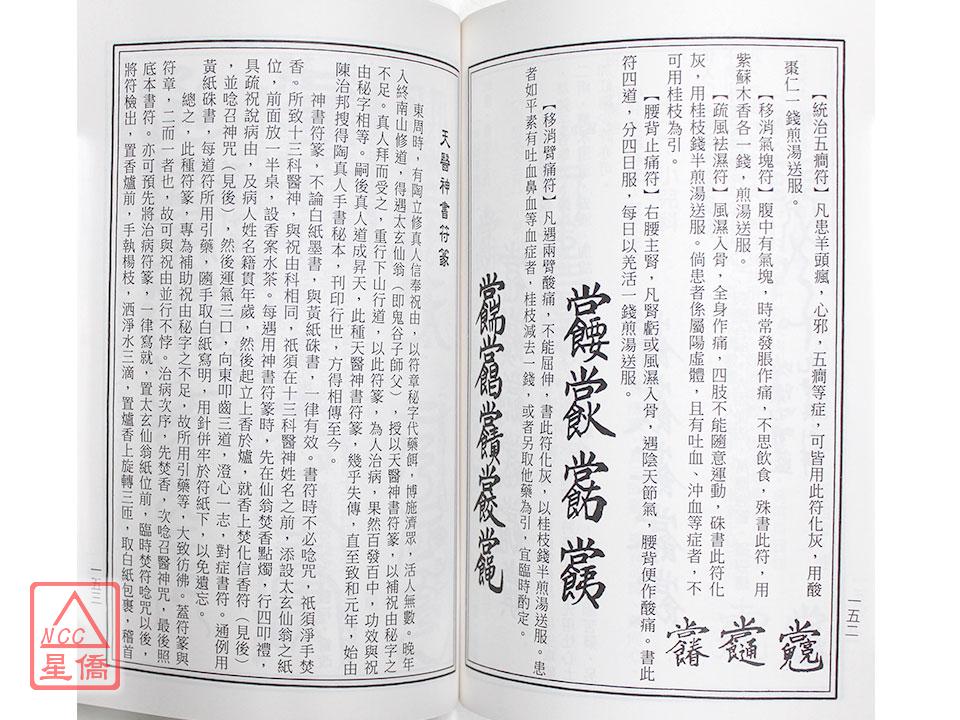 【統治五癇符】凡患羊頭瘋，心邪，五癇等症，可皆用此符化灰，用酸
棗仁一錢煎湯送服。
【移消氣塊符】腹中有氣塊，時常發脹作痛，不思飲食，硃書此符，用
紫蘇木香各一錢，煎湯送服。
【疏風袪濕符】風濕入骨，全身作痛，四肢不能隨意運動，硃書此符化
灰，用桂枝錢半煎湯送服。倘患者係屬陽虛體，且有吐血、沖血等症者，不
可用桂枝為引。
【腰背止痛符】右腰主腎，凡腎虧或風濕入骨，遇陰天節氣，腰背便作酸痛。書此
符四道，分四日服，每日以羌活一錢煎湯送服。
【移消臂痛符】凡遇兩臂酸痛，不能屈伸，書此符化灰，以桂枝錢半煎湯送服。患
者如平素有吐血鼻血等血症者，桂枝減去一錢，或者另取他藥為引，宜臨時酌定。
一五二
天醫神書符篆
東周時，有陶立修真人信奉祝由，以符章秘字代藥餌，博施濟眾，活人無數。晚年
入終南山修道，得遇太玄仙翁（即鬼谷子師父），授以天醫神書符篆，以補祝由秘字之
不足。真人拜而受之，重行下山行道，以此符篆，為人治病，果然百發百中，功效與祝
由秘字相等。嗣後真人道成昇天，此種天醫神書符篆，幾乎失傳，直至致和元年，始由
陳治邦搜得陶真人手書秘本，刊印行世，方得相傳至今。
神書符篆，不論白紙墨書，與黃紙硃書，一律有效。書符時不必唸咒，祇須淨手焚
香。所致十三科醫神，與祝由科相同，祇須在十三科醫神姓名之前，添設太玄仙翁之紙
位，前面放一半桌，設香案水茶。每遇用神書符篆時，先在仙翁焚香點燭，行四叩禮，
具疏祝說病由，及病人姓名籍貫年歲，然後起立上香於爐，就香上焚化信香符（見後）
，並唸召神咒（見後），然後運氣三口，向東叩齒三道，澄心一志，對症書符。通例用
黃紙硃書，每道符所用引藥，隨手取白紙寫明，用針併牢於符紙下，以免遺忘。
總之，此種符篆，專為補助祝由秘字之不足，故所用引藥等，大致彷彿。蓋符篆與
符章，二而一者也，故可與祝由並行不悖。治病次序，先焚香，次唸召醫神咒，最後照
底本書符。亦可預先將治病符篆，一律寫就，置太玄仙翁紙位前，臨時焚符唸咒以後，
將符檢出，置香爐前，手執楊枝，洒淨水三滴，置爐香上旋轉三匝，取白紙包裹，稽首
一五三
NCC
星僑